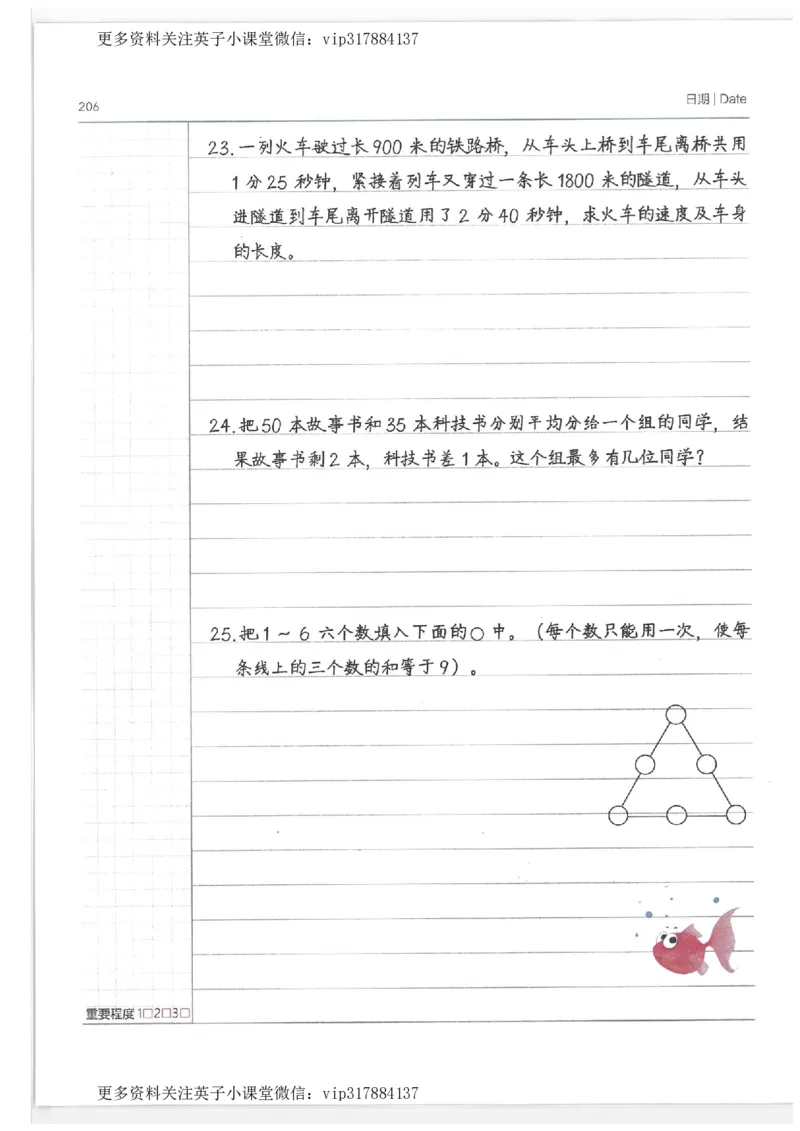 更多资料关注英子小课堂微信：vip317884137
206
日期 | Date
23.一列火车驶过长900 米的铁路桥，从车头上桥到车尾离桥共用
1分25 秒钟，紧接着列车又穿过一条长1800 米的隧道，从车头
进隧道到车尾离开隧道用了2 分40 秒钟，求火车的速度及车身
的长度。
24.把50 本故事书和35 本科技书分别平均分给一个组的同学，结
果故事书剩2 本，科技书差1本。这个组最多有几位同学？
25.把1～6 六个数填入下面的○中。（每个数只能用一次，使每
条线上的三个数的和等于9）。
重要程度 1□2□3□
更多资料关注英子小课堂微信：vip317884137